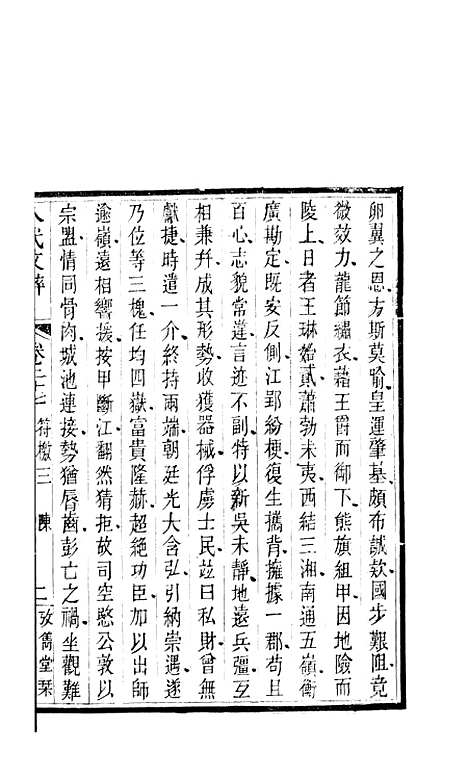 卵翼之恩方斯莫喻皇運肇基頗布誠欵國步艱阻竟
微效力龍節繡衣藉王爵而御下熊旗組甲因地險而
陵上日者王琳始貳蕭勃未夷西結三湘南通五嶺衡
廣勘定既安反側江郢紛梗復生攜背擁據一郡苟且
百心志貌常違言迹不副特以新吳未靜地遠兵彊互
相兼幷成其形勢收獲器械俘虜士民竝曰私財曾無
獻捷時遣一介終持兩端朝廷光大含弘引納崇遇遂
乃位等三槐任均四嶽富貴隆赫超絶功臣加以出師
逾嶺遠相響援按甲斷江翻然猜拒故司空愍公敦以
宗盟情同骨肉城池連接勢猶脣齒彭亡之禍坐觀難
八代文粹 卷二十七 符檄三 陳 二 攷雋堂栞